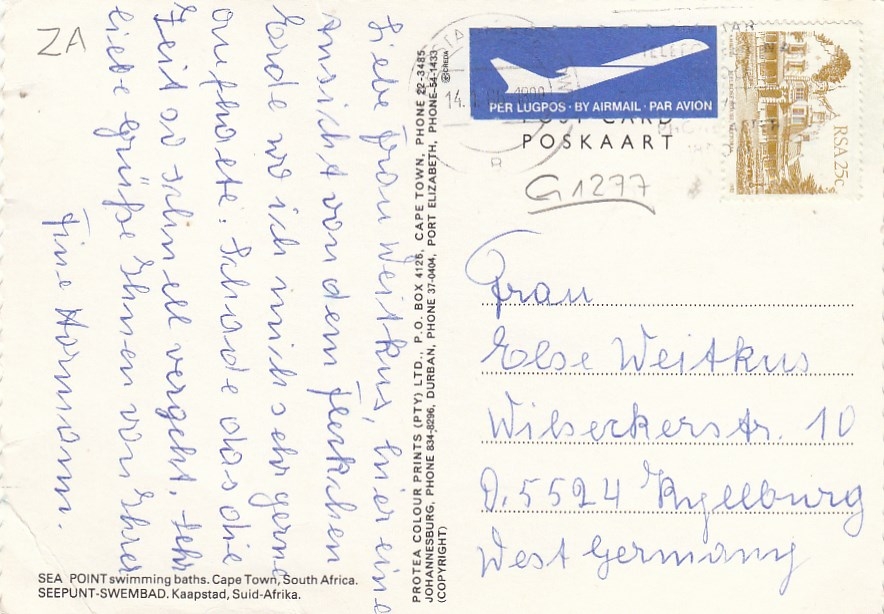 ZA
Liebe Frau Weitkus, hier eine
Ansicht von dem Flekchen
Erde wo ich mich sehr gerne
aufhalte. Schade das die
Zeit so schnell vergeht. Sehr
liebe Grüße Ihnen von Ihrer
Fine Hormann.
SEA POINT swimming baths. Cape Town, South Africa.
SEEPUNT-SWEMBAD. Kaapstad, Suid-Afrika.
PROTEA COLOUR PRINTS (PTY) LTD., P.O. BOX 4126, CAPE TOWN, PHONE 22-3485
JOHANNESBURG, PHONE 834-8296, DURBAN, PHONE 37-0404, PORT ELIZABETH, PHONE 54-1433
(COPYRIGHT)
PER LUGPOS · BY AIRMAIL · PAR AVION
POST CARD
POSKAART
RSA 25c
G1277
Frau
Else Weitkus
Wilseckerstr. 10
D. 5524 Kyllburg
West Germany